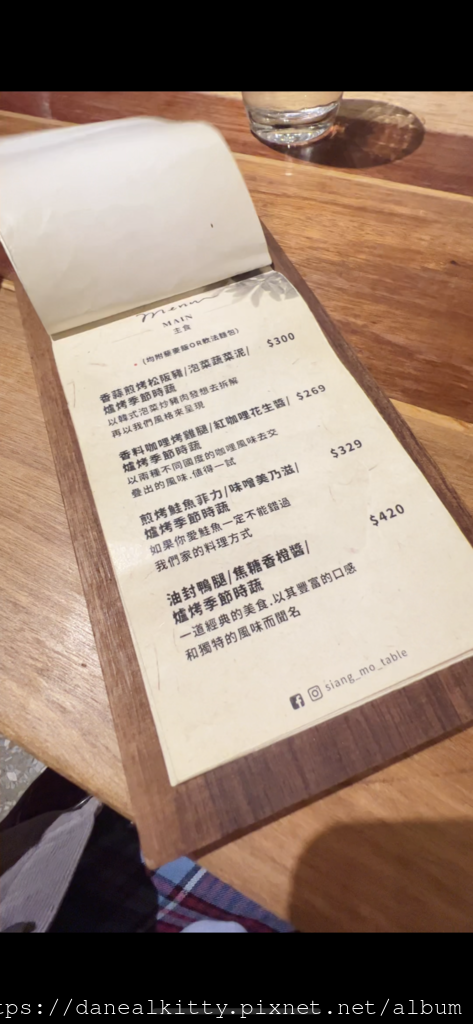 Menu
MAIN
主食
(均附藜麥飯OR軟法麵包)
香蒜煎烤松阪豬/泡菜蔬菜泥/ $300
爐烤季節時蔬
以韓式泡菜炒豬肉發想去拆解
再以我們風格來呈現
香料咖哩烤雞腿/紅咖哩花生醬/ $269
爐烤季節時蔬
以兩種不同國度的咖哩風味去交
疊出的風味.值得一試
煎烤鮭魚菲力/味噌美乃滋/ $329
爐烤季節時蔬
如果你愛鮭魚一定不能錯過
我們家的料理方式
油封鴨腿/焦糖香橙醬/ $420
爐烤季節時蔬
一道經典的美食.以其豐富的口感
和獨特的風味而聞名
siang_mo_table
tps://danealkitty.pixnet.net/album